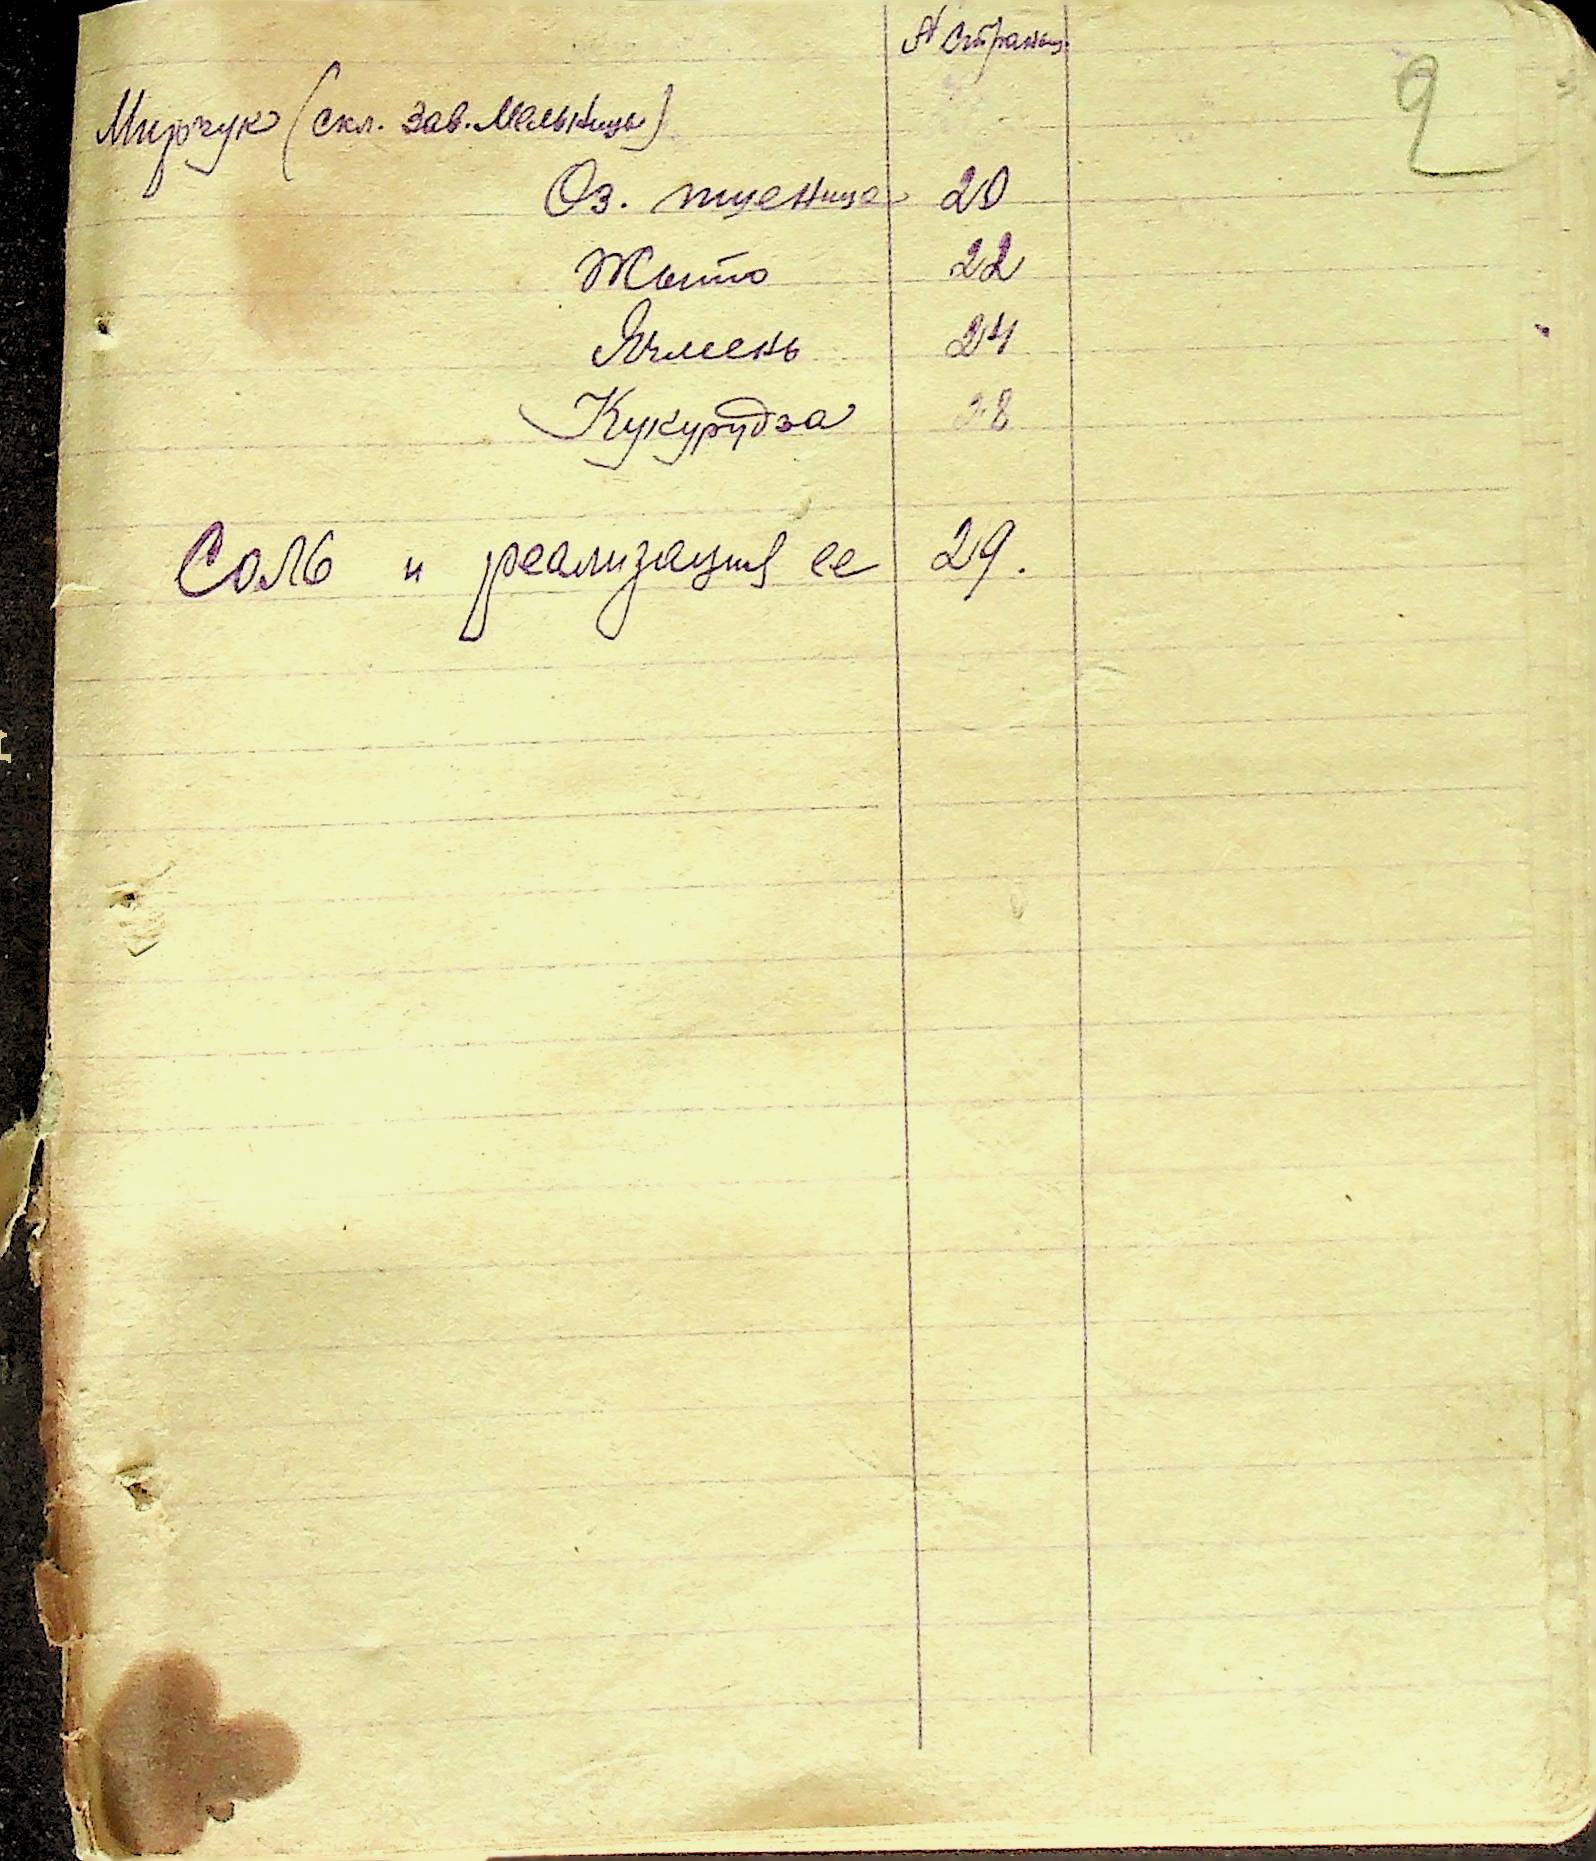 № Страниц
2
Мирчук (скл. зав. Мельницы)
Оз. пшеница 20
Жыто 22
Ячмень 24
Кукурудза 28
Соль и реализация ее 29.